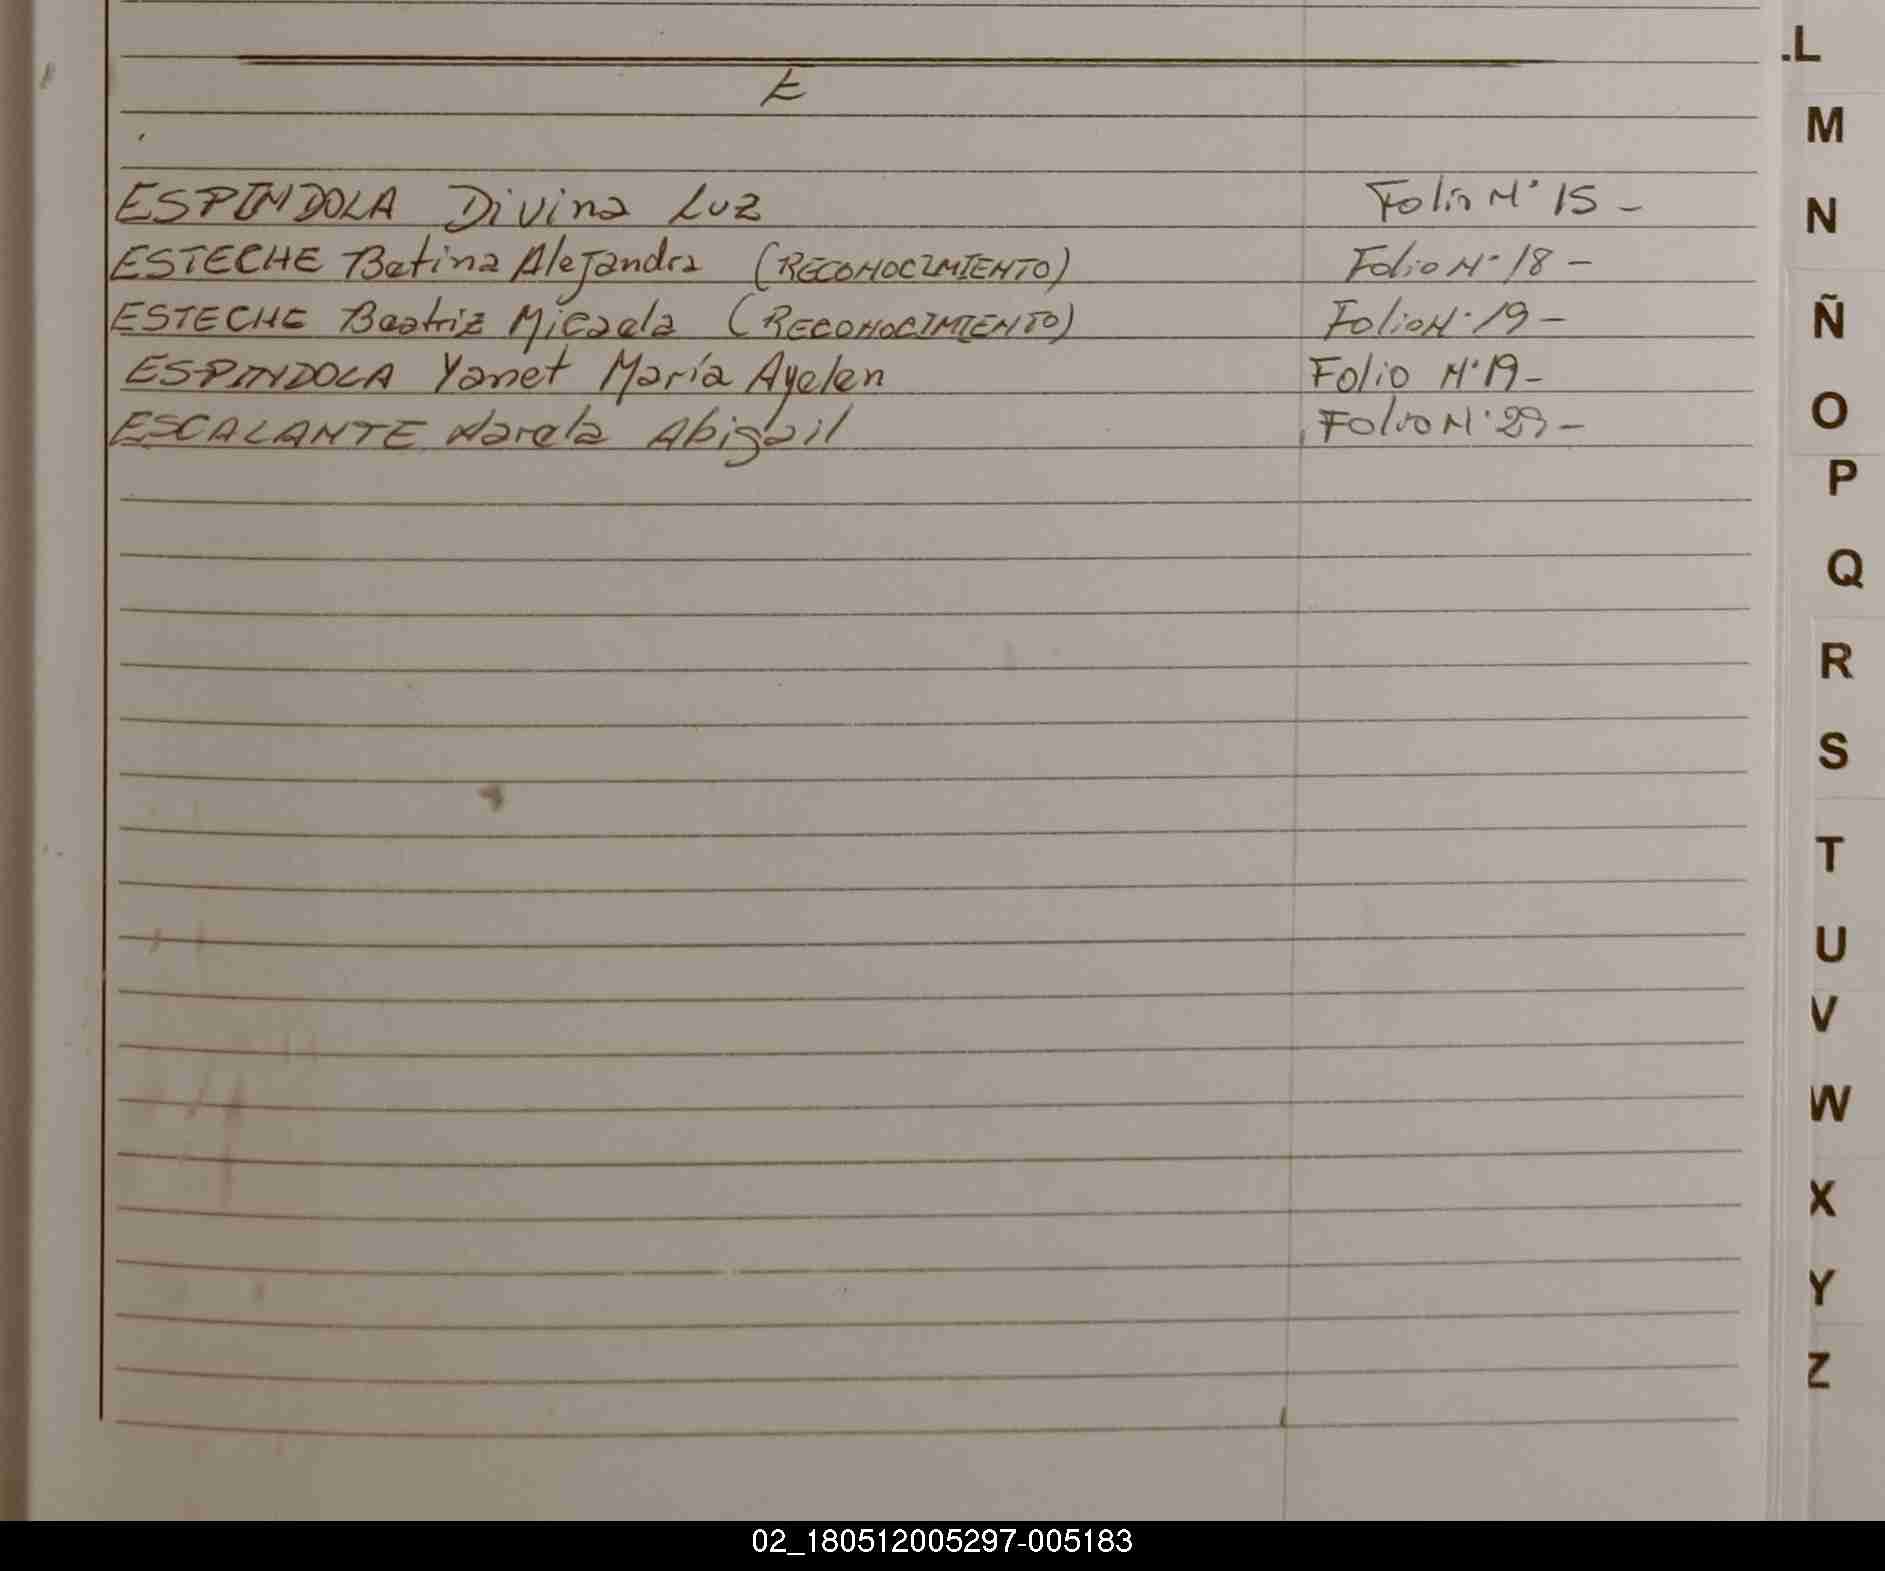 E
ESPINDOLA Divina Luz Folio N° 15 -
ESTECHE Betina Alejandra (RECONOCIMIENTO) Folio N° 18 -
ESTECHE Beatriz Micaela (RECONOCIMIENTO) Folio N° 19 -
ESPINDOLA Yanet María Ayelen Folio N° 19 -
ESCALANTE Narela Abigail Folio N° 29 -
L
M
N
Ñ
O
P
Q
R
S
T
U
V
W
X
Y
Z
02_180512005297-005183